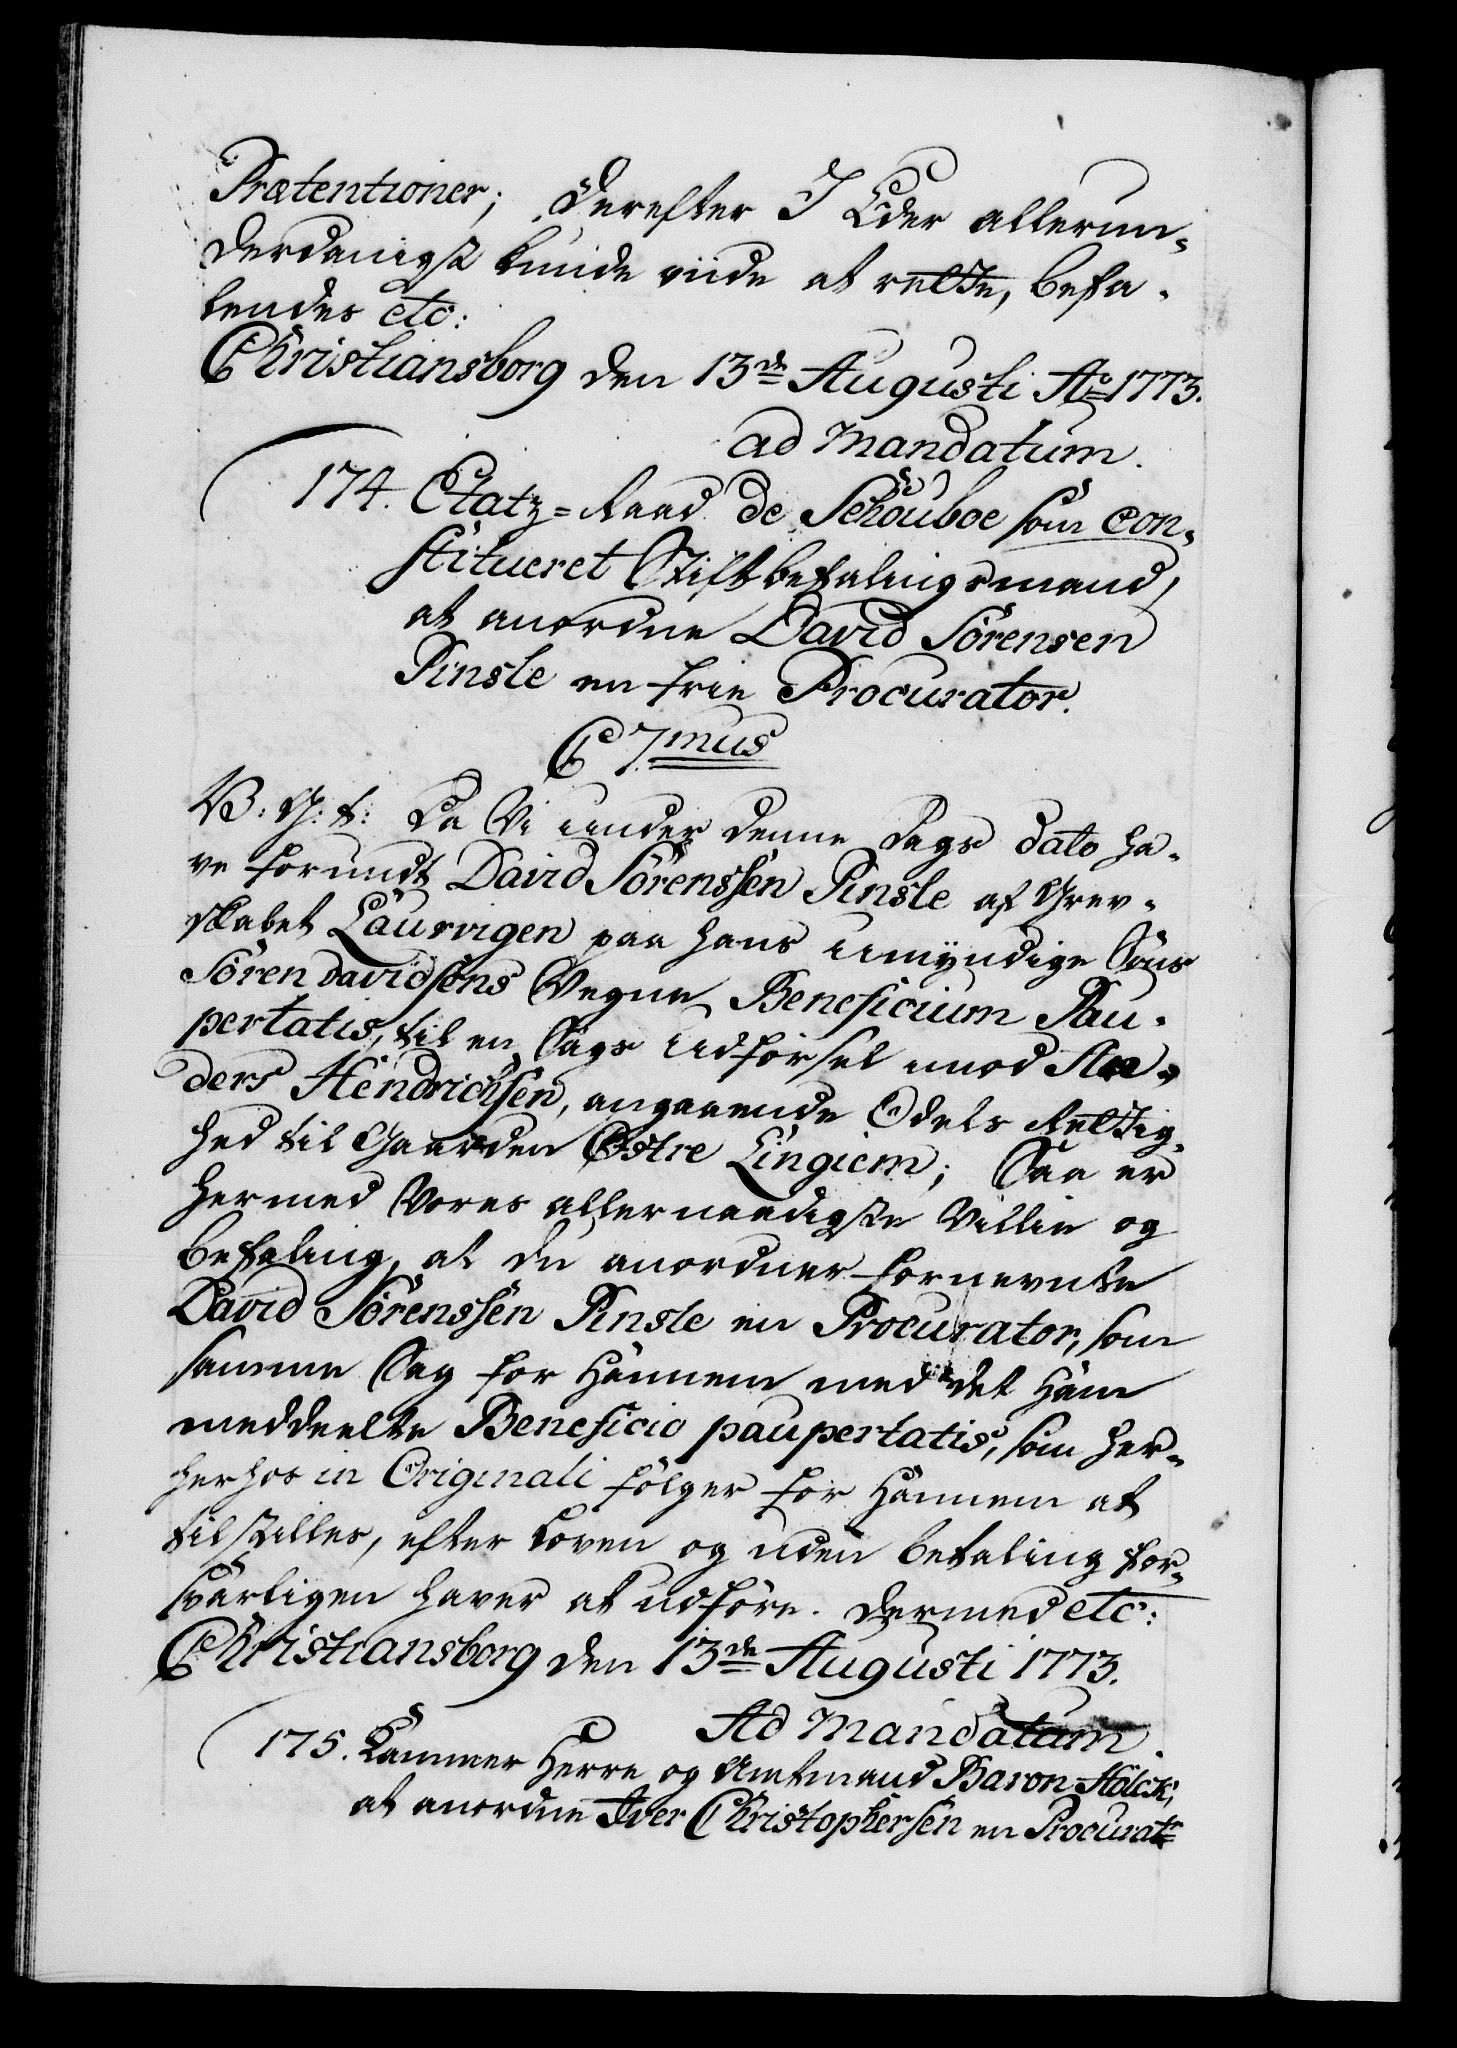 Prætentioner; Derefter I Eder allerun-
derdanigst kunde viide at rette, befa-
lendes etc:
Christiansborg den 13de Augusti Ao 1773.
ad Mandatum.
174. Etatz-Raad de Schouboe som con-
stitueret Stiftbefalingsmand,
at anordne David Sörensen
Pinsle en frie Procurator.
C 7.mus
V: G: T: Da Vi under denne Dags dato ha-
ve forundt David Sörenssen Pinsle af Grev-
skabet Laurvigen paa hans umyndige Söns
Sören Davidsöns Vegne Beneficium Pau-
pertatis, til en Sags Udförsel imod An-
ders Hendrichsen, angaaende Odels Rettig-
hed til Gaarden Østre Lingiem; Saa er
hermed Vores allernaadigste Villie og
Befaling, at du anordner fornevnte
David Sörenssen Pinsle en Procurator, som
samme Sag for Hannem med det Ham
meddeelte Beneficio paupertatis, som her-
herhos in Originali fölger for Hannem at
tilstilles, efter Loven og uden betaling for-
svarligen haver at udföre. Dermed etc:
Christiansborg den 13de Augusti 1773.
Ad Mandatum.
175. Kammer Herre og Amtmand Baron Holck,
at anordne Iver Christophersen en Procuratr